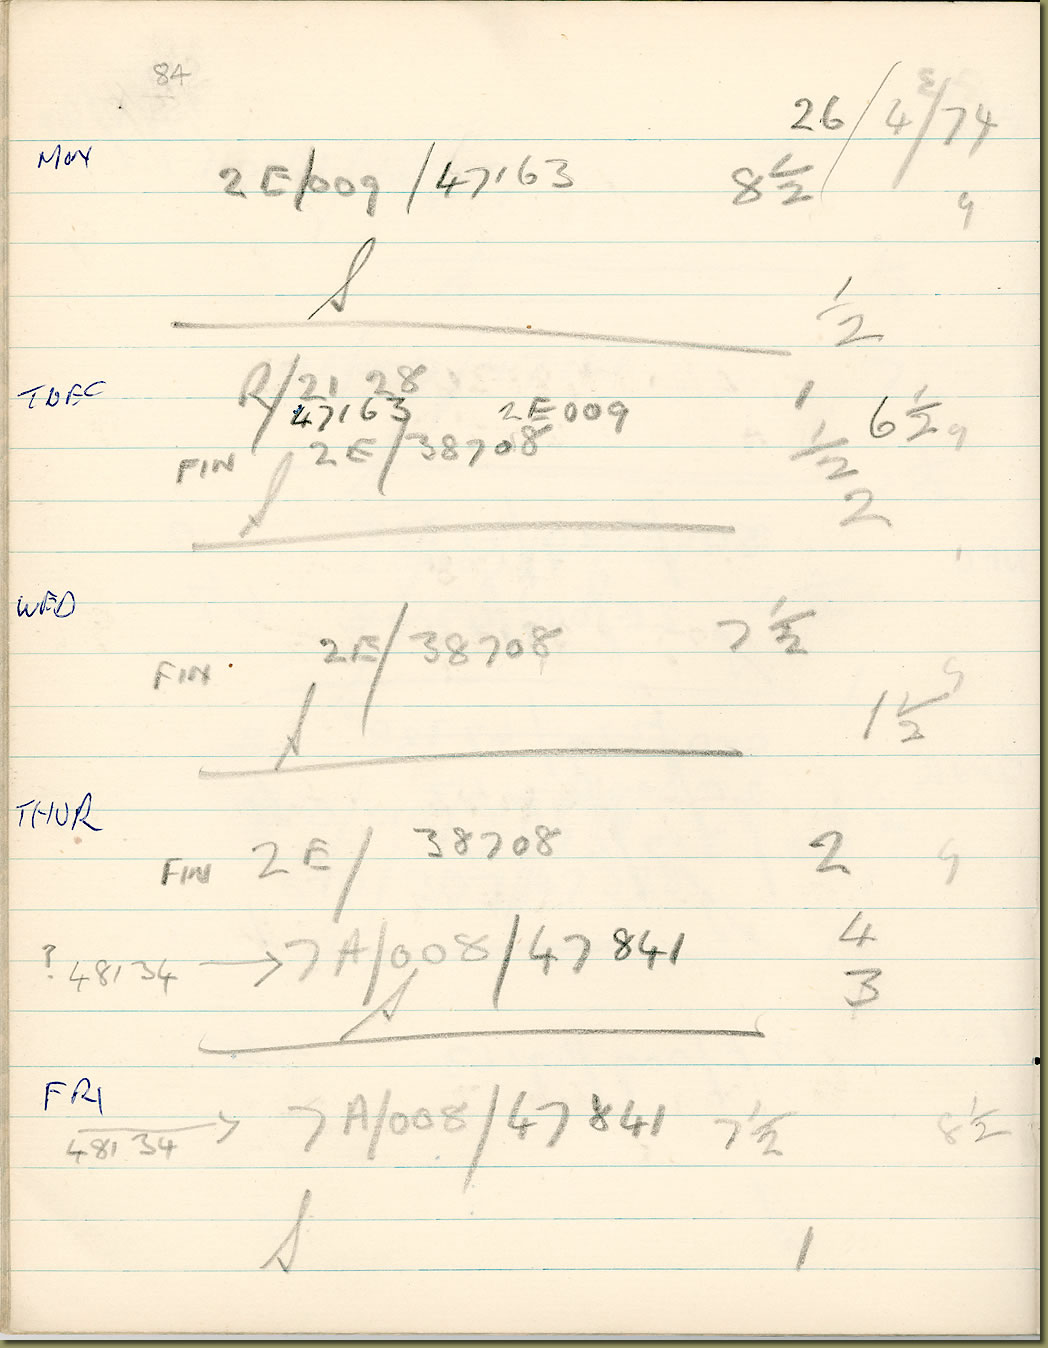 84
26/4/74
MON 2E/009/47163 8½
9
S ½
TUES R/21 28 1
47163 2E009 6½ 9
FIN 2E/38708 ½
S 2
WED 2E/38708 7½
FIN 9
S 1½
THUR
FIN 2E/ 38708 2 9
? 48134 → 7A/008/47841 4
S 3
FRI 7A/008/47841 7½ 8½
48134 →
S 1